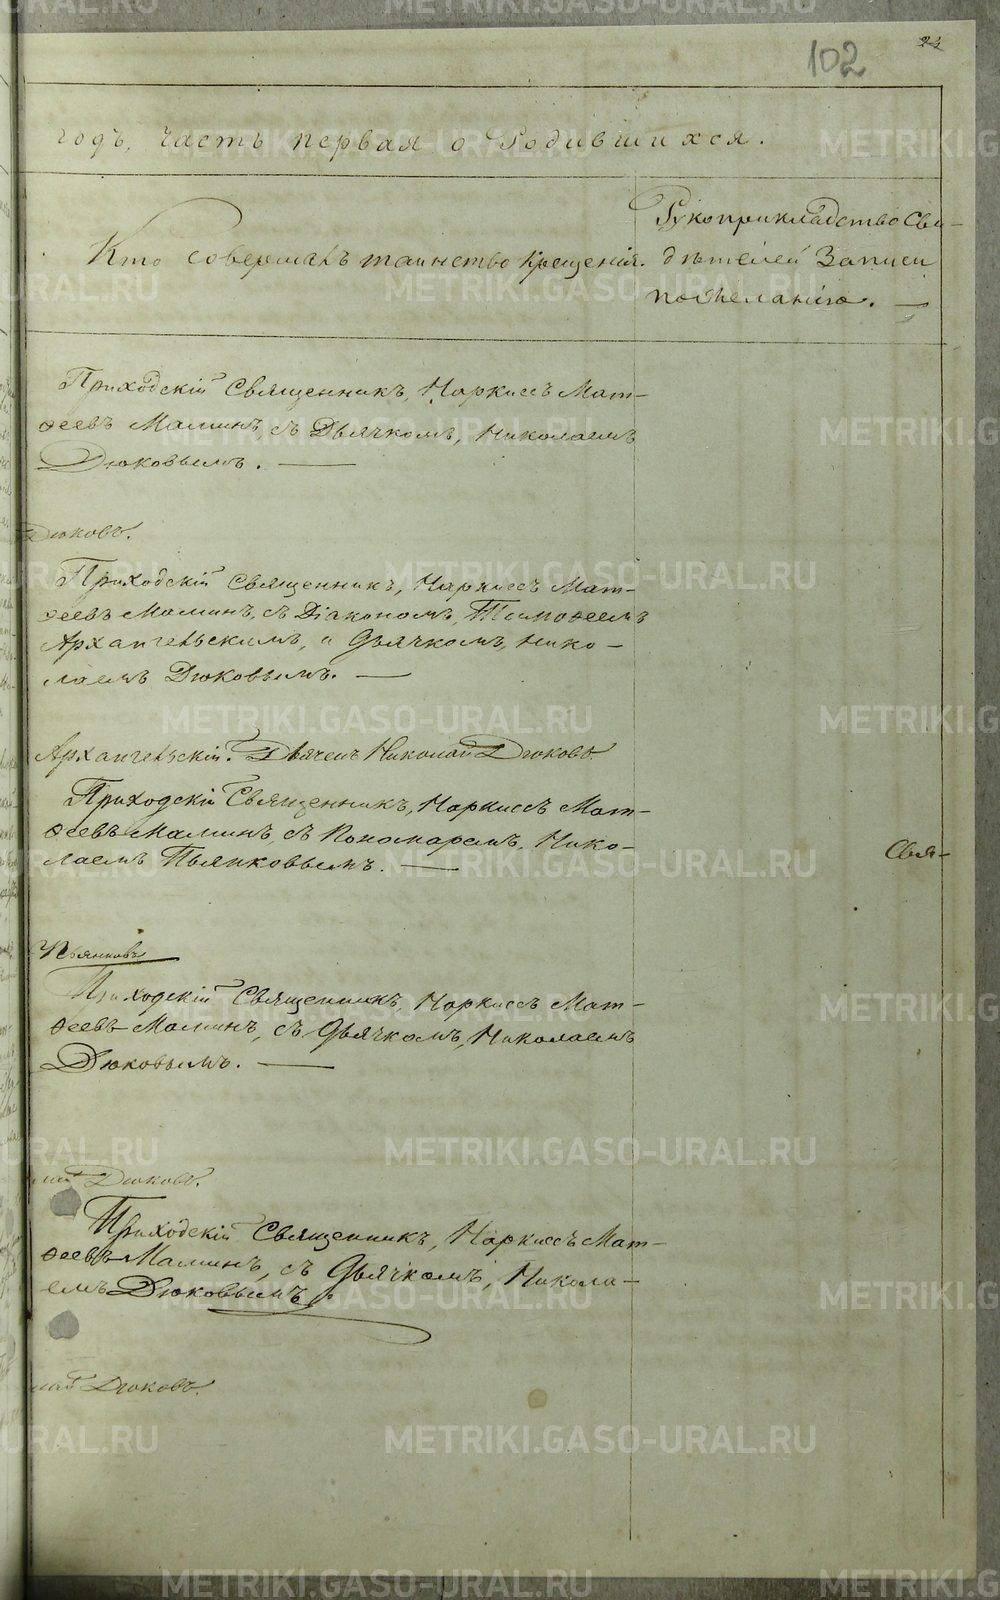 102
годъ, часть первая о Родившихся.
Кто совершалъ таинство крещенія.
Рукоприкладство Сви-
дѣтелей Записи
по желанію. —
Приходскій Священникъ, Наркиссъ Мат-
ѳеевъ Малинъ, съ Дьячкомъ, Николаемъ
Дюковымъ. —
Дюковъ.
Приходскій Священникъ, Наркиссъ Мат-
ѳеевъ Малинъ, съ Діакономъ, Тимоѳеемъ
Архангельскимъ, и Дьячкомъ, Нико-
лаемъ Дюковымъ. —
Архангельскій. Дьячекъ Николай Дюковъ.
Приходскій Священникъ, Наркиссъ Мат-
ѳеевъ Малинъ, съ Пономаремъ, Нико-
лаемъ Пьянковымъ. —
Свя-
Пьянковъ
Приходскій Священникъ, Наркиссъ Мат-
ѳеевъ Малинъ, съ Дьячкомъ, Николаемъ
Дюковымъ. —
лай Дюковъ.
Приходскій Священникъ, Наркиссъ Мат-
ѳеевъ Малинъ, съ Дьячкомъ, Никола-
емъ Дюковымъ.
лай Дюковъ.
METRIKI.GASO-URAL.RU